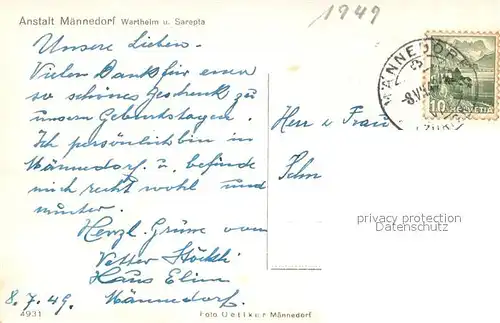 Anstalt Männedorf Wartheim u. Sarepta
1949
Unsere Lieben.
Vielen Dank für euer
so schönes Geschenk zu
unsern Geburtstagen.
Ich persönlich bin in
Männedorf. u. befinde
mich recht wohl und
munter.
Herzl. Grüsse vom
Vetter Stöckli
Haus Elim
8.7.49. Männedorf.
MÄNNEDORF
10 HELVETIA
Herr u Frau
privacy protection
Datenschutz
4931
Foto Oetiker Männedorf